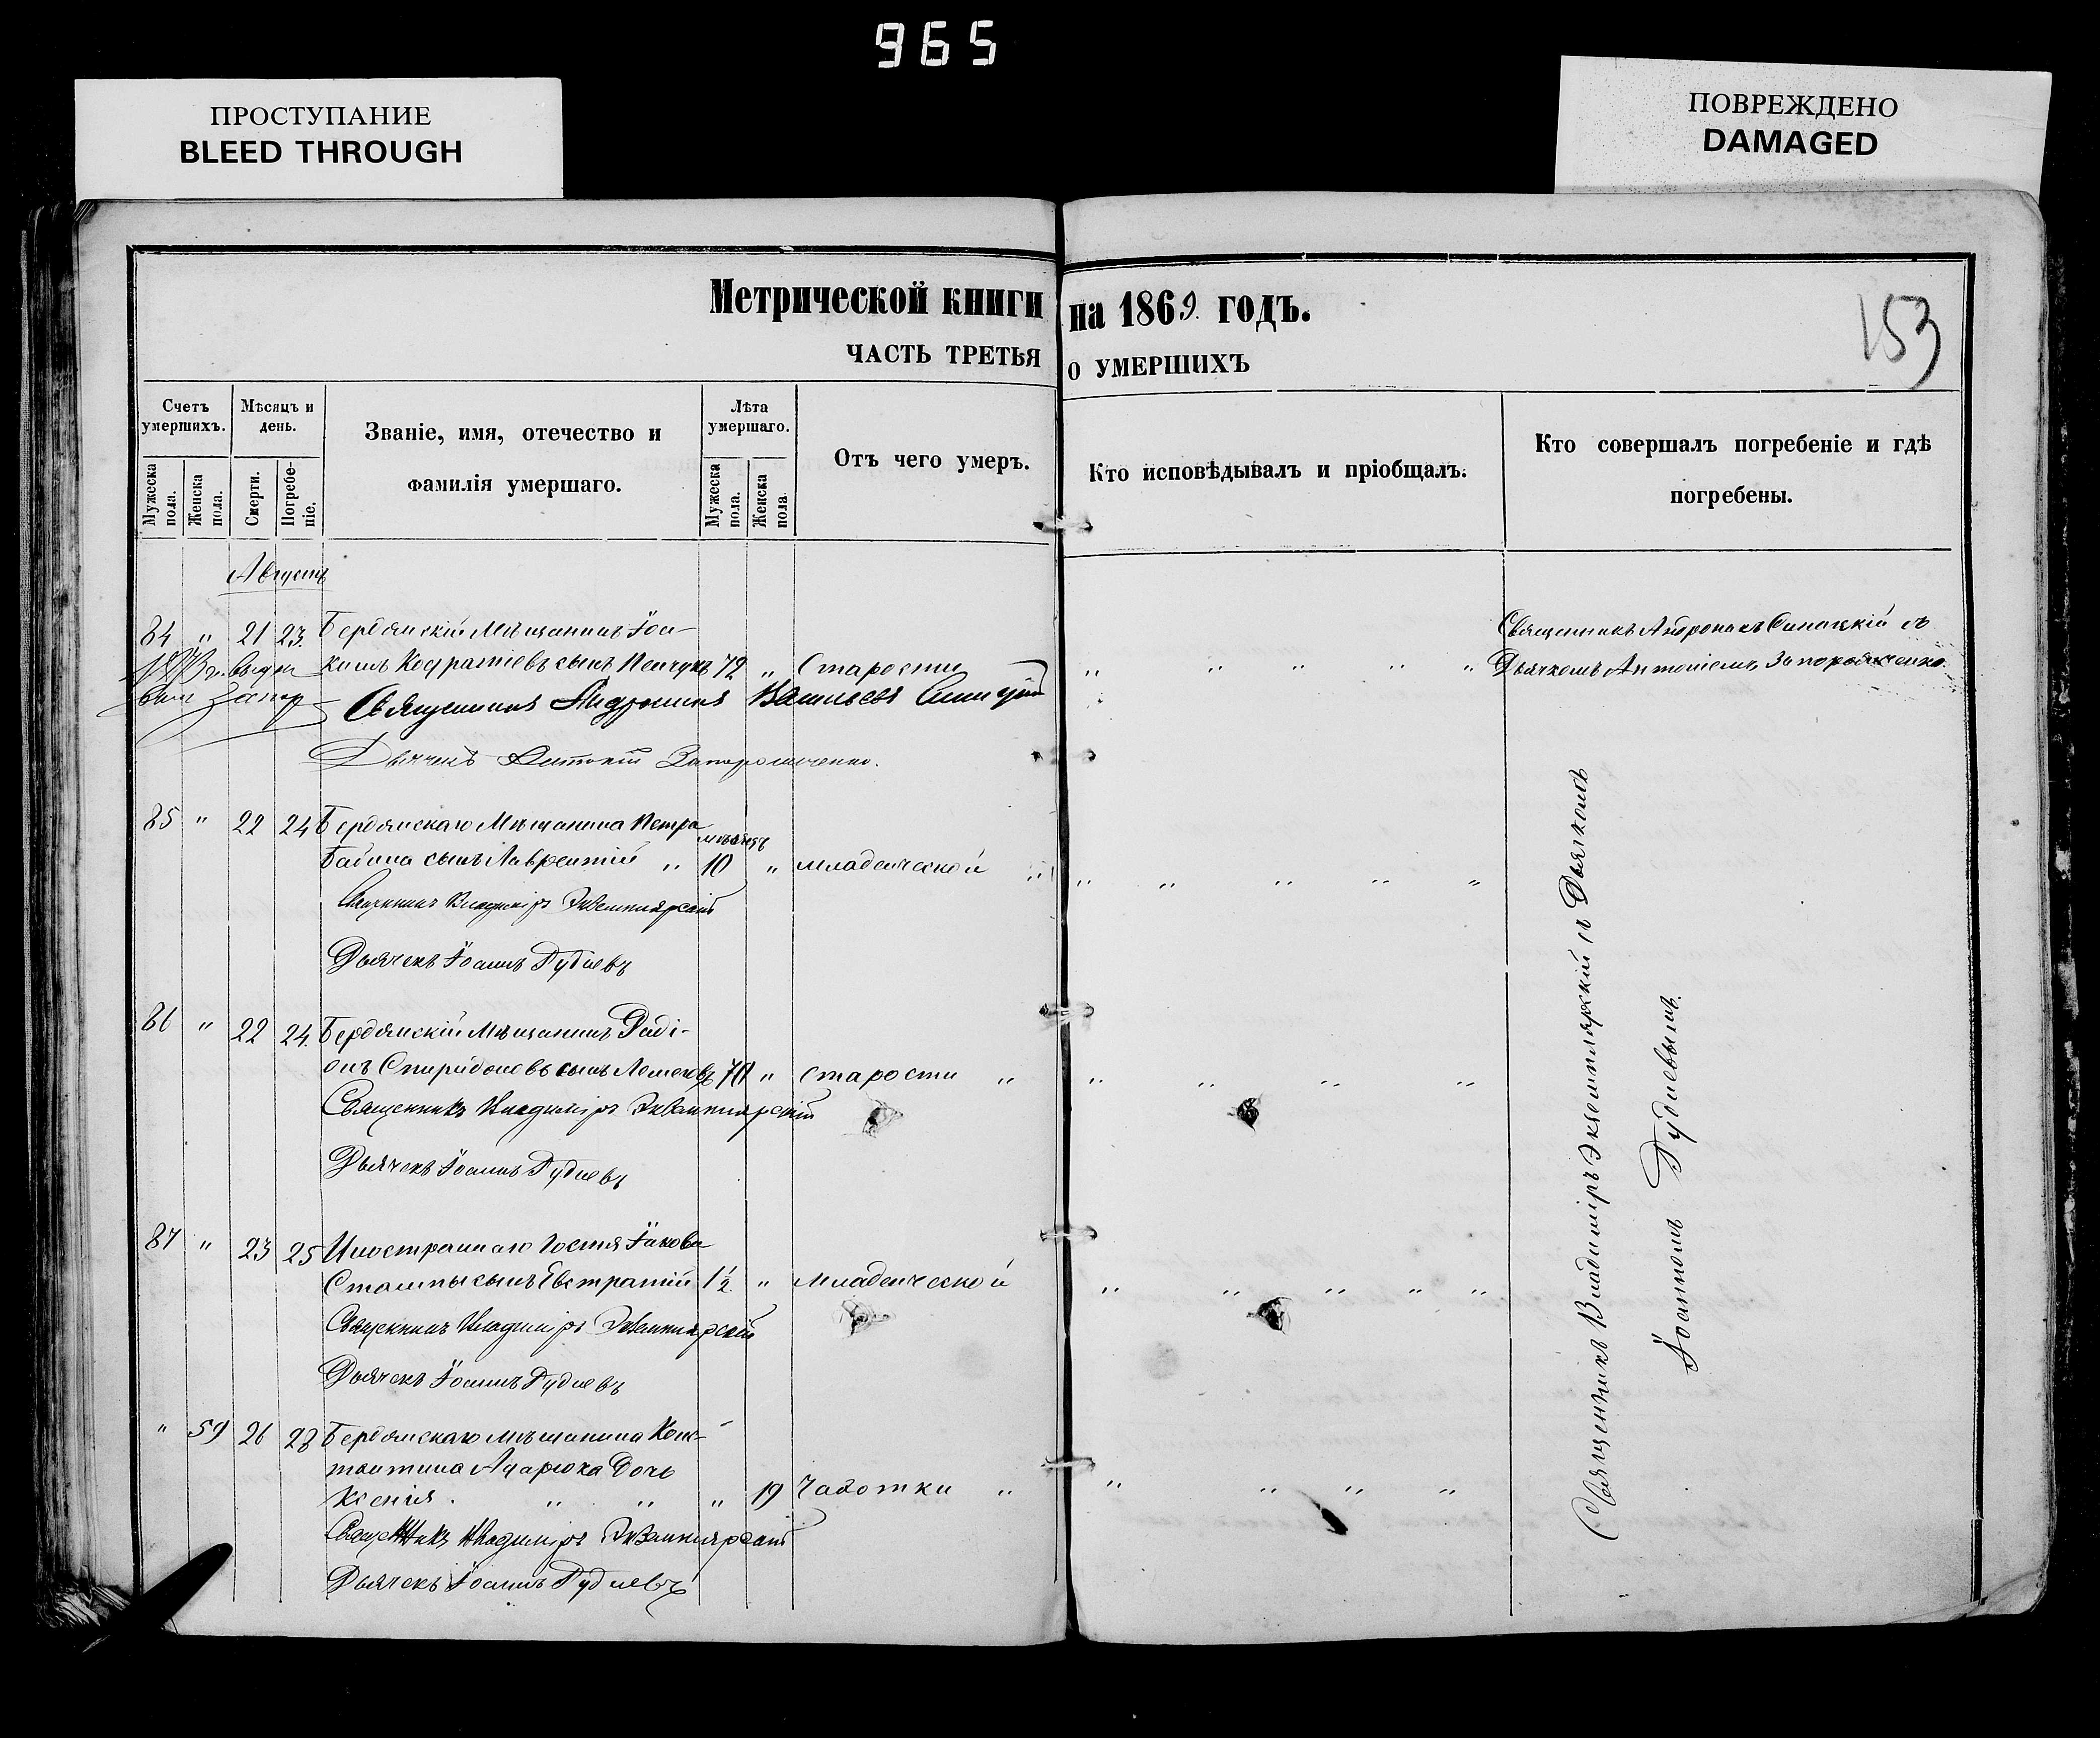 965
ПРОСТУПАНИЕ
BLEED THROUGH
ПОВРЕЖДЕНО
DAMAGED
Метрической книги на 1869 годъ.
153
ЧАСТЬ ТРЕТЬЯ О УМЕРШИХЪ
Счетъ умершихъ.
Мужеска пола.
Женска пола.
Мѣсяцъ и день.
Смерти.
Погребеніе.
Званіе, имя, отечество и фамилія умершаго.
Лѣта умершаго.
Мужеска пола.
Женска пола.
Отъ чего умеръ.
Кто исповѣдывалъ и пріобщалъ.
Кто совершалъ погребеніе и гдѣ погребены.
Августъ
84 " 21 23. Бердянскій Мѣщанинъ Іоа-
кимъ Кодратіевъ сынъ 72 " Старости " " " " "
Священникъ Андроникъ Синицкій съ
Дьячкомъ Антоніемъ Запорожченко.
Священникъ Андроникъ Васильевъ Синицкій
Дьячекъ Антоній Запорожченко.
85 " 22 24 Бердянскаго Мѣщанина Петра
Бабина сынъ Лаврентій " мѣсяцъ 10 " младенческой " " " " " "
Священникъ Владиміръ Экземплярскій
Дьячекъ Іоаннъ Гудіевъ
86 " 22 24. Бердянскій Мѣщанинъ Раді-
онъ Спиридоновъ сынъ 70 " старости " " " " "
Священникъ Владиміръ Экземплярскій
Дьячекъ Іоаннъ Гудіевъ
87 " 23 25 Иностраннаго Гостя Іакова
Стампы сынъ Евстратій 1½ " младенческой " " " " "
Священникъ Владиміръ Экземплярскій
Дьячекъ Іоаннъ Гудіевъ
" 59 26 28 Бердянскаго мѣщанина Конс-
тантина дочь
Ксенія. " " " 19 Чахотки " " " " "
Священникъ Владиміръ Экземплярскій
Дьячекъ Іоаннъ Гудіевъ
Священникъ Владиміръ Экземплярскій съ Дьячкомъ
Іоанномъ Гудіевымъ.